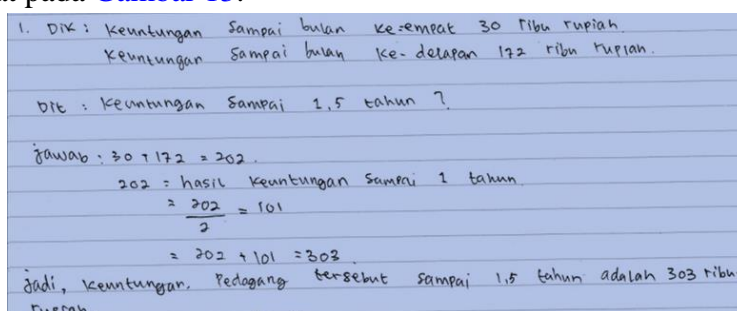 a pada Gambar 13.
1. Dik : Keuntungan Sampai bulan ke-empat 30 ribu rupiah
Keuntungan Sampai bulan ke-delapan 172 ribu rupiah.
Dit : Keuntungan Sampai 1,5 tahun ?
Jawab : 30 + 172 = 202.
202 = hasil keuntungan sampai 1 tahun
= 202/2 = 101
= 202 + 101 = 303.
Jadi, keuntungan. Pedagang tersebut sampai 1,5 tahun adalah 303 ribu
rupiah